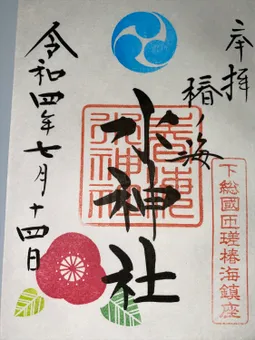 奉拝
椿ノ海
水神社
令和四年七月十四日
下総國匝瑳椿海鎮座